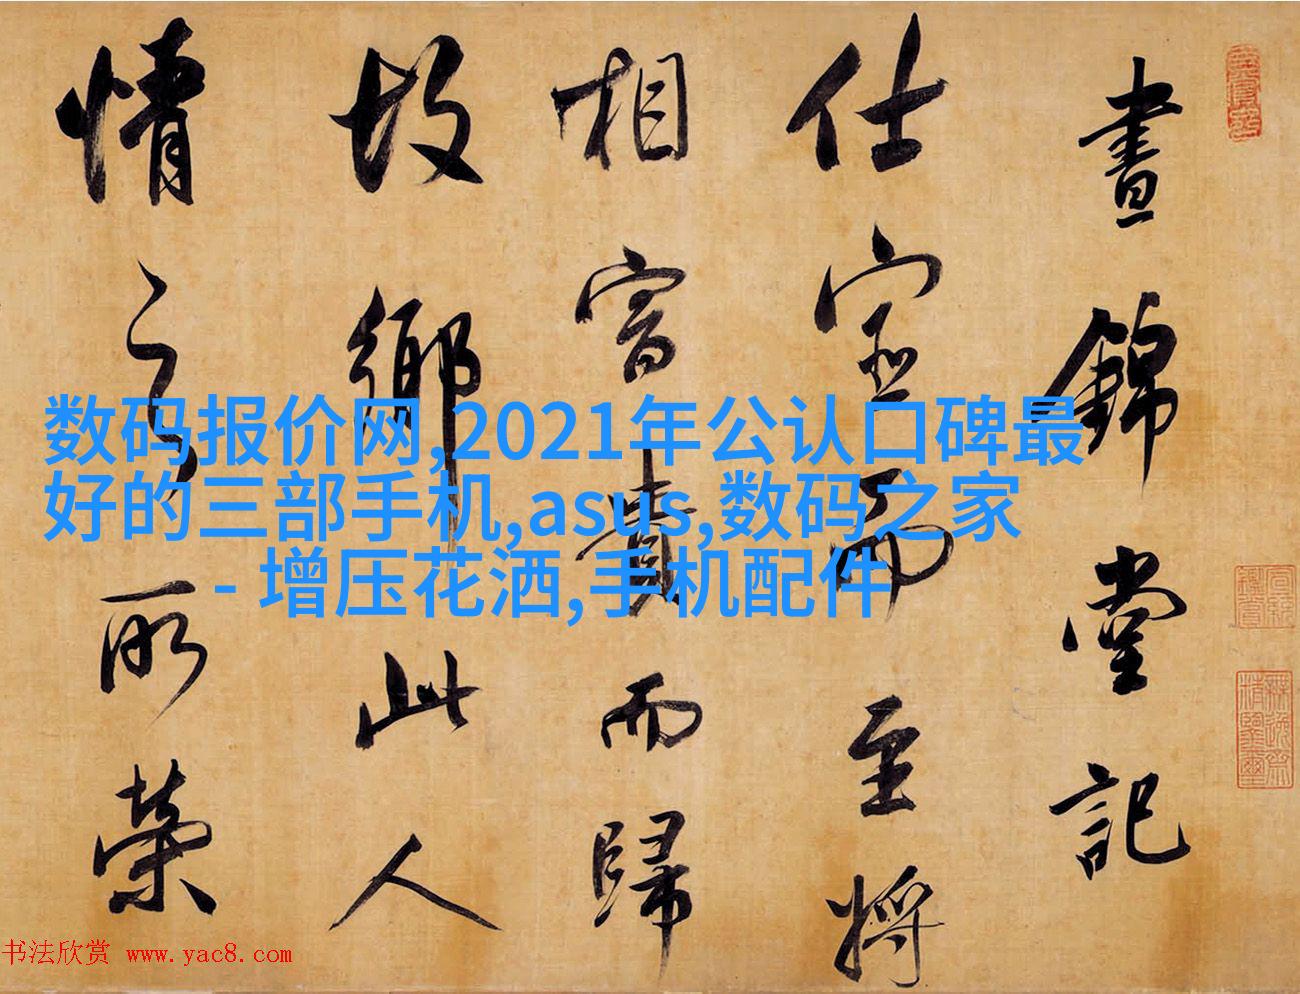 晝錦堂記
仕宦而至將
相富貴而歸
故鄉此人
情之所榮
数码报价网,2021年公认口碑最
好的三部手机,asus,数码之家
- 增压花洒,手机配件
书法欣赏 www.yac8.com